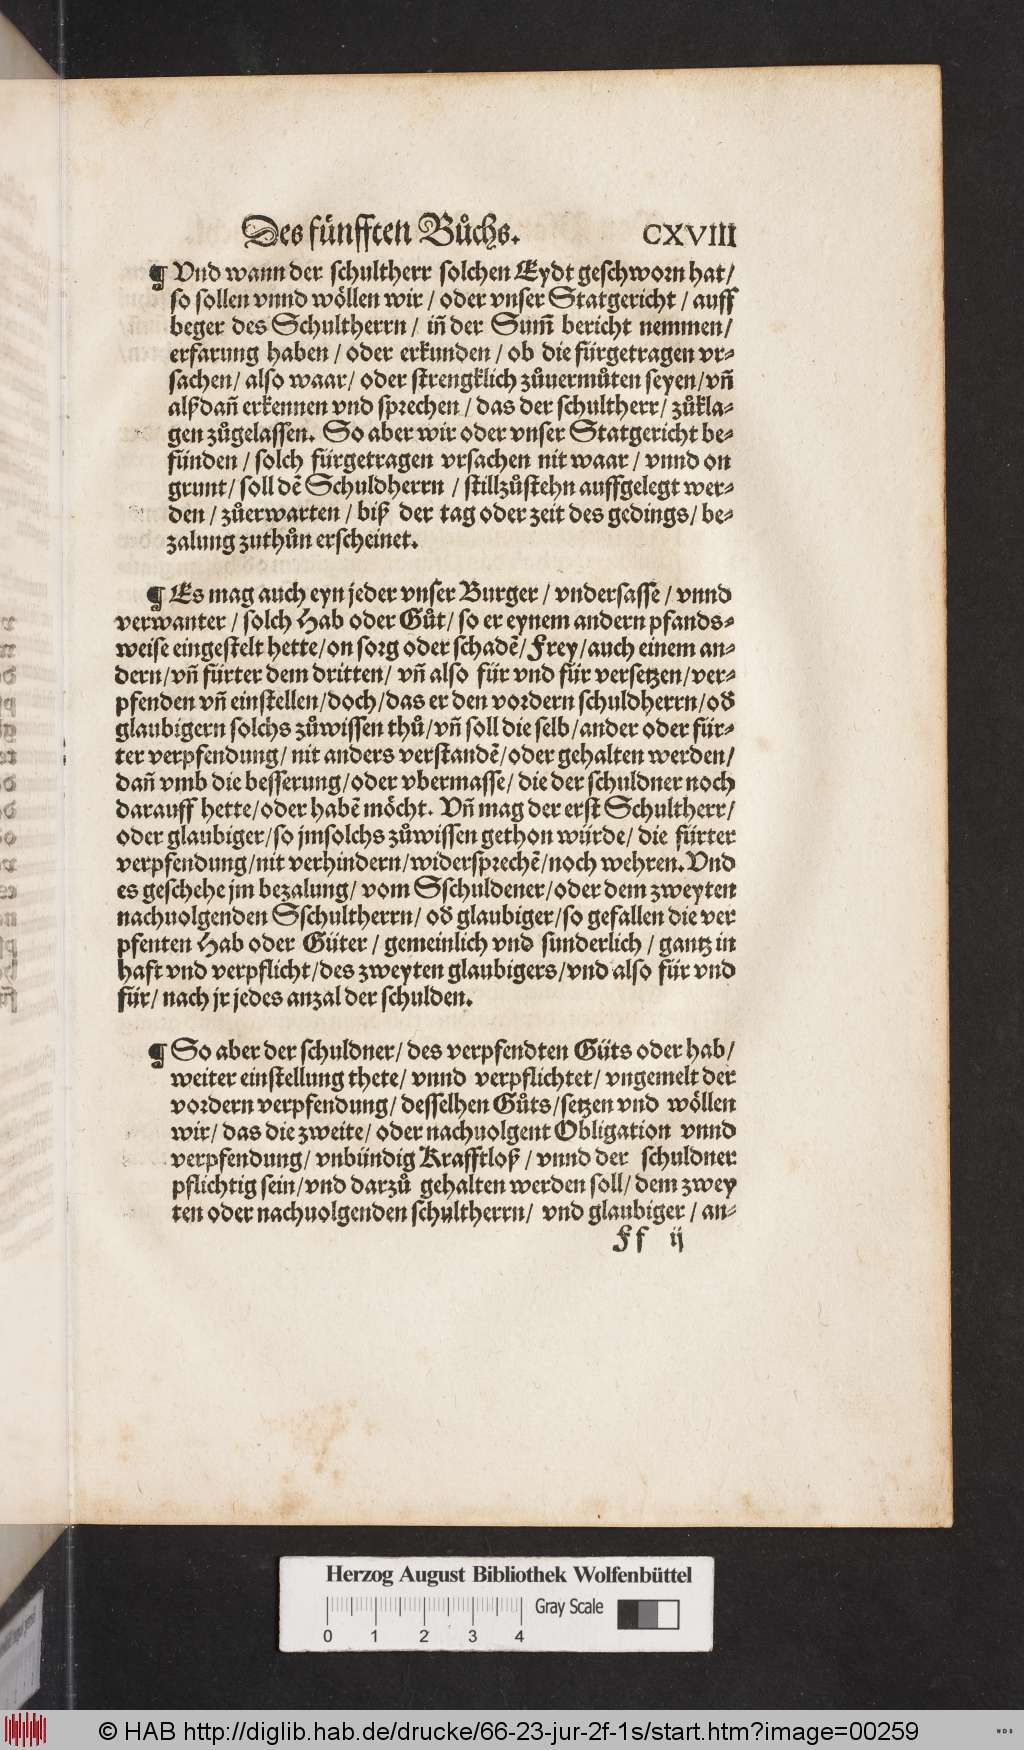 Des fünfften Bůchs. CXVIII
¶ Vnd wann der schultherr solchen Eydt geschworn hat/
so sollen vnnd wöllen wir / oder vnser Statgericht / auff
beger des Schultherrn / in̄ der Sum̄ bericht nemmen/
erfarung haben / oder erkunden / ob die fürgetragen vr⸗
sachen/ also waar/ oder strengklich zůuermůten seyen/vn̄
alßdan̄ erkennen vnd sprechen / das der schultherr/ zůkla⸗
gen zůgelassen. So aber wir oder vnser Statgericht be⸗
fünden / solch fürgetragen vrsachen nit waar / vnnd on
grunt/ soll dē Schuldherrn / stillzůstehn auffgelegt wer⸗
den / zůerwarten / biß der tag oder zeit des gedings/ be⸗
zalung zuthůn erscheinet.
¶ Es mag auch eyn jeder vnser Burger / vndersasse / vnnd
verwanter / solch Hab oder Gůt/ so er eynem andern pfands⸗
weise eingestelt hette/on sorg oder schadē/ Frey/auch einem an⸗
dern/vn̄ fürter dem dritten/ vn̄ also für vnd für versetzen/ver⸗
pfenden vn̄ einstellen/doch/das er den vordern schuldherrn/oď
glaubigern solchs zůwissen thů/vn̄ soll die selb/ander oder für⸗
ter verpfendung/ nit anders verstandē/oder gehalten werden/
dan̄ vmb die besserung/oder vbermasse/ die der schuldner noch
darauff hette/oder habē möcht. Vn̄ mag der erst Schultherr/
oder glaubiger/so jmsolchs zůwissen gethon würde/ die fürter
verpfendung/nit verhindern/widersprechē/noch wehren.Vnd
es geschehe jm bezalung/ vom Sschuldener/oder dem zweyten
nachuolgenden Sschultherrn/ oď glaubiger/so gefallen die ver
pfenten Hab oder Güter / gemeinlich vnd sunderlich / gantz in
haft vnd verpflicht/des zweyten glaubigers/vnd also für vnd
für/ nach jr jedes anzal der schulden.
¶ So aber der schuldner/ des verpfendten Güts oder hab/
weiter einstellung thete/ vnnd verpflichtet/ vngemelt der
vordern verpfendung/ desselhen Gůts/setzen vnd wöllen
wir/ das die zweite/ oder nachuolgent Obligation vnnd
verpfendung/ vnbündig Krafftloß / vnnd der schuldner
pflichtig sein/vnd darzů gehalten werden soll/ dem zwey
ten oder nachuolgenden schultherrn/ vnd glaubiger / an⸗
Ff ij
Herzog August Bibliothek Wolfenbüttel
Gray Scale
0 1 2 3 4
© HAB http://diglib.hab.de/drucke/66-23-jur-2f-1s/start.htm?image=00259